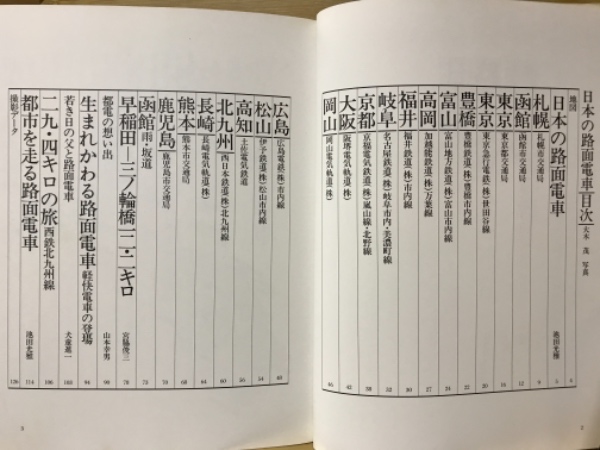 日本の路面電車 目次 大木 茂 写真
地図 4
日本の路面電車 池田光雅 5
札幌 札幌市交通局 9
函館 函館市交通局 12
東京 東京都交通局 16
東京 東京急行電鉄(株)世田谷線 20
豊橋 豊橋鉄道(株)豊橋市内線 22
富山 富山地方鉄道(株)富山市内線 24
高岡 加越能鉄道(株)万葉線 27
福井 福井鉄道(株)
岐阜 名古屋鉄道(株)岐阜市内・美濃町線
京都 京福電気鉄道(株)嵐山線・北野線 38
大阪 阪堺電気軌道(株) 42
岡山 岡山電気軌道(株) 46
2
広島 広島電鉄(株)市内線
松山 伊予鉄道(株)松山市内線 54
高知 土佐電気鉄道 56
北九州 西日本鉄道(株)北九州線 60
長崎 長崎電気軌道(株) 64
熊本 熊本市交通局 68
鹿児島 鹿児島市交通局 70
函館 雨・坂道 73
早稲田―三ノ輪橋一二・一キロ 宮脇俊三 78
都電の想い出 山本幸男 90
生まれかわる路面電車 軽快電車の登場 94
若き日の父と路面電車 犬童進一 103
二九・四キロの旅 西鉄北九州線 106
都市を走る路面電車 池田光雅 114
撮影データ 126
3